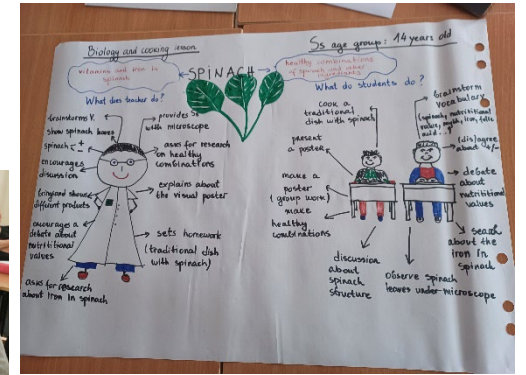 Biology and cooking lesson
Ss age group: 14 years old
vitamins and iron in
spinach
SPINACH
healthy combinations
of spinach and other
ingredients
What does teacher do?
What do students do?
brainstorms V.
show spinach leaves
spinach ±
encourages
discussion
different products
encourages a
debate about
nutritional
values
asks for research
about iron in spinach
provides Ss
with microscope
asks for research
on healthy
combinations
explains about
the visual poster
sets homework
(traditional dish
with spinach)
cook a
traditional
dish with spinach
present
a poster
make a
poster
(group work)
make
healthy
combinations
discussion
about
spinach
structure
observe spinach
leaves under microscope
brainstorm
vocabulary
(spinach, nutritional
value, myth, iron, folic
acid...)
(dis)agree
about +/-
debate
about
nutritional
values
search
about the
iron in
spinach